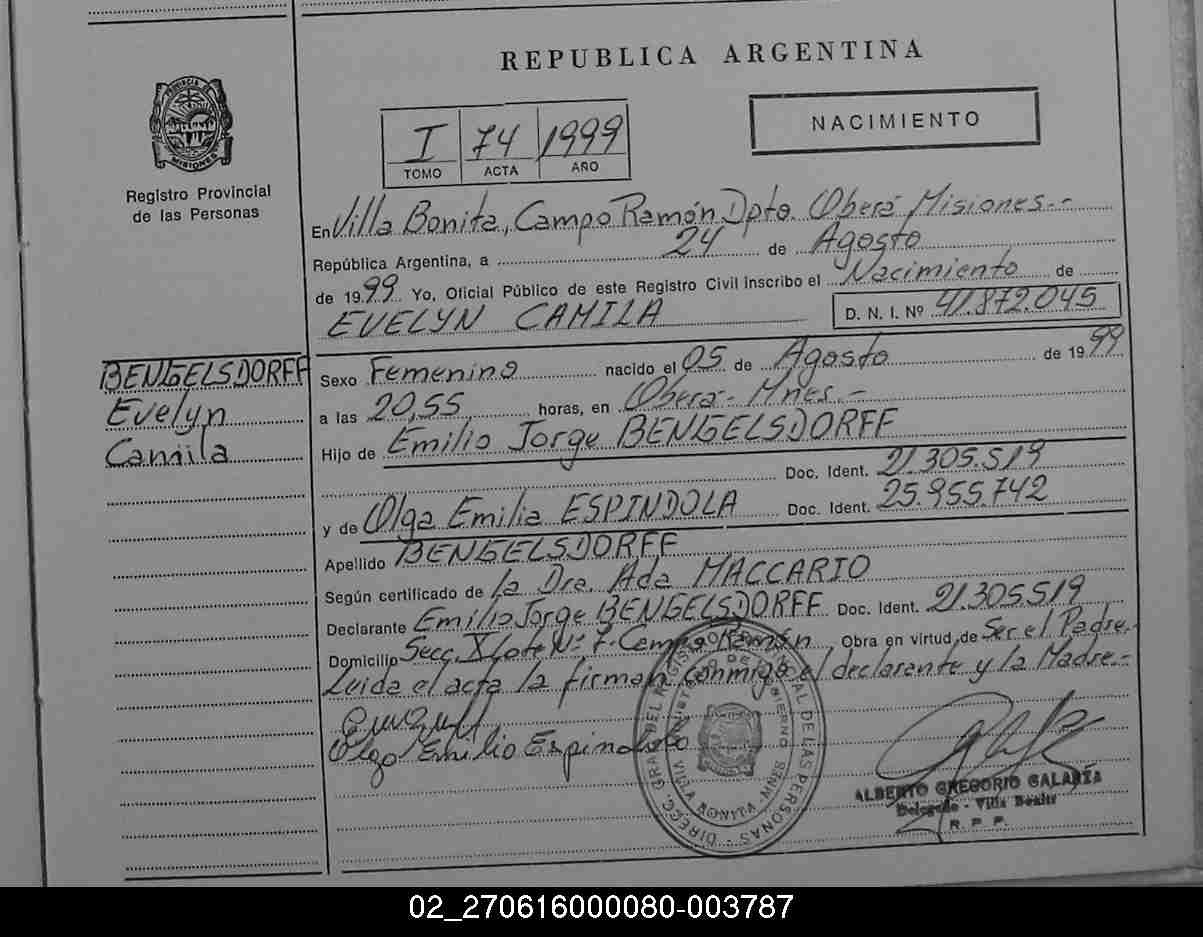 REPUBLICA ARGENTINA
PROVINCIA DE MISIONES
Registro Provincial
de las Personas
I 74 1999
TOMO ACTA AÑO
NACIMIENTO
En Villa Bonita, Campo Ramón Dpto. Oberá Misiones.-
República Argentina, a 24 de Agosto
de 1999 Yo, Oficial Público de este Registro Civil inscribo el Nacimiento de
EVELYN CAMILA D. N. I. Nº 41.872.045
BENGELSDORFF
Evelyn
Camila
Sexo Femenino nacido el 05 de Agosto de 1999
a las 20,55 horas, en Oberá - Mnes.-
Hijo de Emilio Jorge BENGELSDORFF
Doc. Ident. 21.305.519
y de Olga Emilia ESPINDOLA Doc. Ident. 25.955.742
Apellido BENGELSDORFF
Según certificado de la Dra. Ada MACCARIO
Declarante Emilio Jorge BENGELSDORFF Doc. Ident. 21.305.519
Domicilio Secc. X Lote Nº 7- Campo Ramón Obra en virtud de Ser el Padre.-
Leida el acta la firman conmigo el declarante y la Madre.-
Olga Emilia Espindola
DIREC. GRAL DEL REGISTRO PROVINCIAL DE LAS PERSONAS
MINISTERIO DE GOBIERNO
VILLA BONITA - MNES
ALBERTO GREGORIO GALARZA
Delegado - Villa Bonita
R. P. P.
02_270616000080-003787